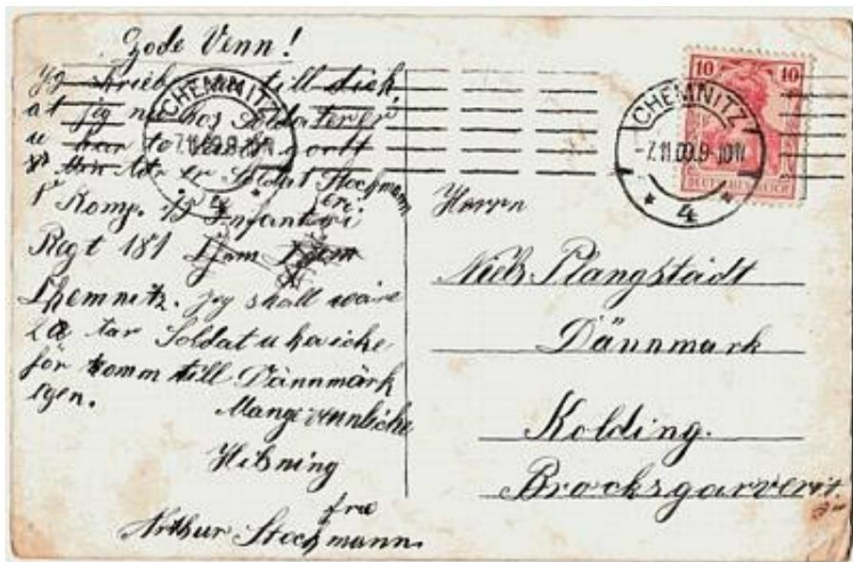 Gode Venn!
Yg skrieb nu till dich
at jg nu hos Soldaterei
u har to
Min Adr. er Soldat Stockmann
1 Komp. 15 Infanteri
Regt 181
Chemnitz. jyg skall wäre
2 Aar Soldat u ka icke
för komm till Dännmärk
igen.
Mange vennlicke
Hilsning
fra
Arthur Stockmann.
CHEMNITZ
7.11.09.9-10V.
4
CHEMNITZ
-7.11.09.9-10V.
* 4 *
10 10
DEUTSCHES REICH
Herrn
Niels Plangstädt
Dännmark
Kolding.
Brocksgarveri.